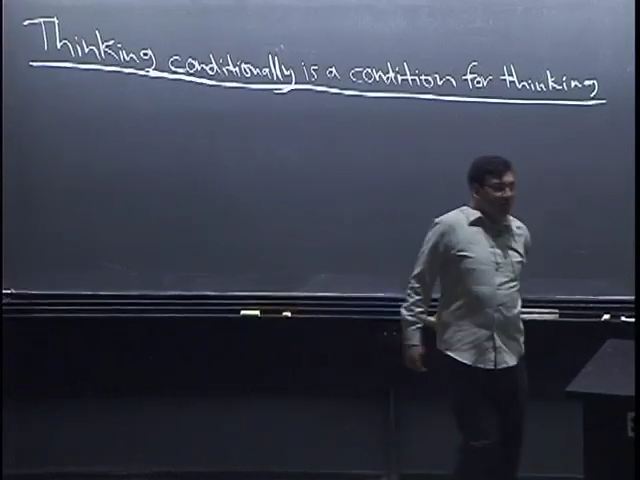 Thinking conditionally is a condition for thinking